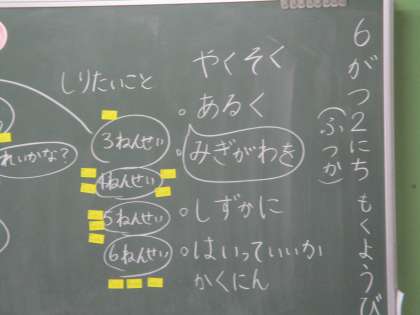 6がつ2にち もくようび
(ふつか)
やくそく
。あるく
。みぎがわを
。しずかに
。はいっていいか
かくにん
しりたいこと
3ねんせい
4ねんせい
5ねんせい
6ねんせい
れいかな?